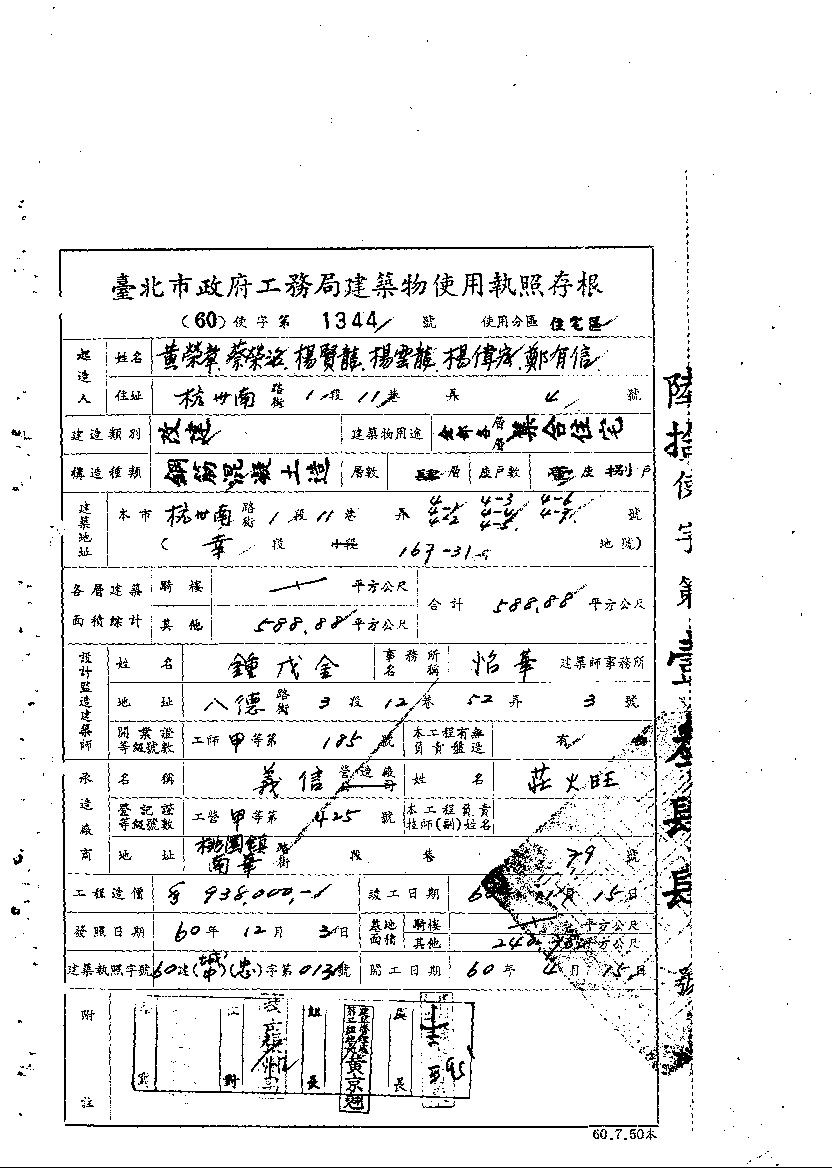 臺北市政府工務局建築物使用執照存根
(60)使字第 1344 號 使用分區 住宅區
起造人 姓名 楊賢龍 楊雲龍 鄭有信
住址 杭州南 路街 1 段 11 巷 弄 4 號
建造類別 改建 建築物用途 集合住宅
構造種類 鋼筋混凝土造 層數 肆 層 座戶數 壹 座 捌 戶
建築地址 本市 杭州南 路街 1 段 11 巷 弄 4- 4-1 4-2 4-3 4-4 4-5 4-6 號
( 幸 段 小段 167-31 地號)
各層建築面積綜計 騎樓 平方公尺 合計 588.88 平方公尺
其他 588.88 平方公尺
設計監造建築師 姓名 鍾茂金 事務所名稱 怡華 建築師事務所
地址 八德 路街 3 段 12 巷 52 弄 3 號
開業證等級號數 工師 甲 等第 185 號 本工程有無負責監造 有
承造廠商 名稱 義信 營造廠 姓名 莊火旺
登記證等級號數 工營 甲 等第 425 號 本工程負責技師(副)姓名
地址 桃園鎮南華 路街 段 巷 79 號
工程造價 938,000,- 竣工日期 15日
發照日期 60年 12月 3日 基地面積 騎樓 平方公尺
其他 平方公尺
建築執照字號 60建(城中)(忠)字第013號 開工日期 60年 4月 15日
附註
組長
黃京
長
60.7.50本
陸拾使字第壹 號